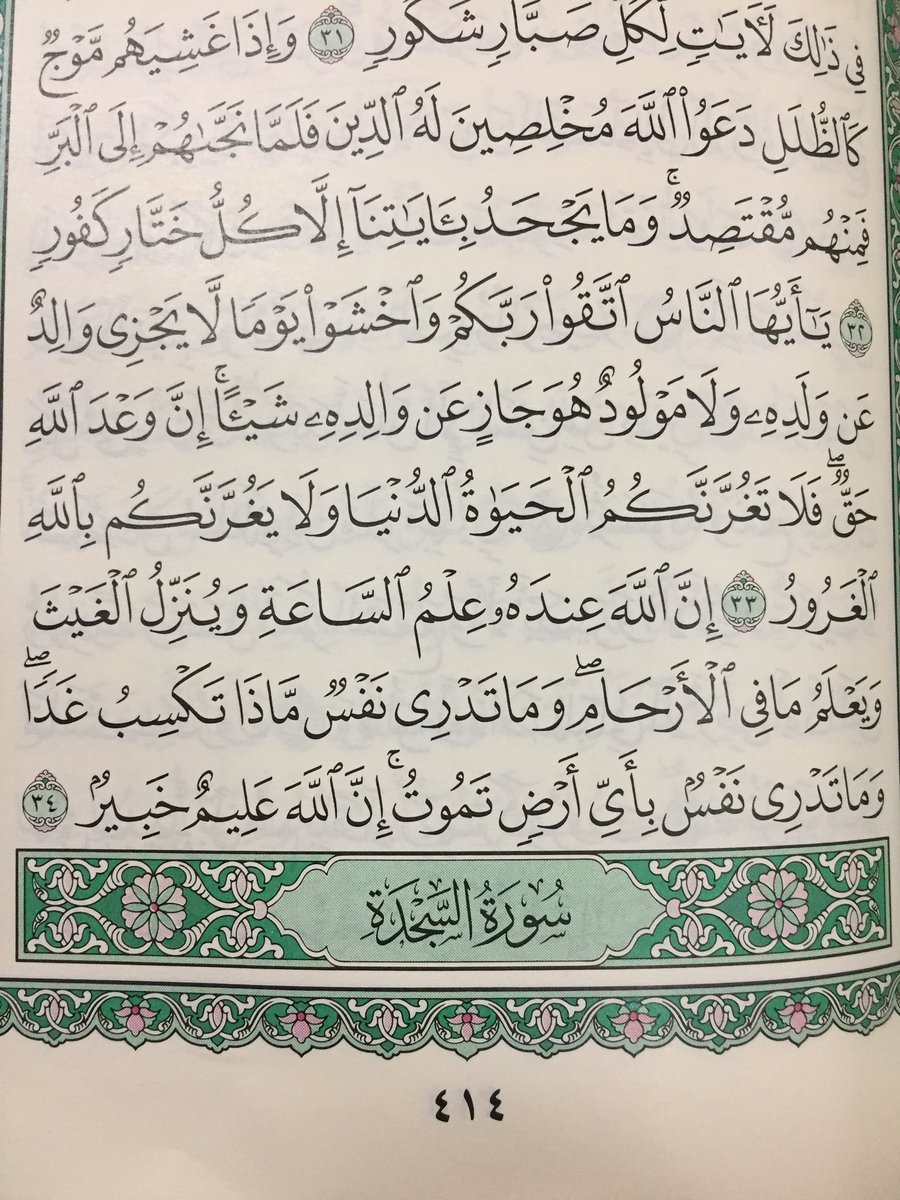 فِي ذَٰلِكَ لَأٓيَٰتٍ لِّكُلِّ صَبَّارٍ شَكُورٍ ٣١ وَإِذَا غَشِيَهُم مَّوۡجٌ
كَٱلظُّلَلِ دَعَوُاْ ٱللَّهَ مُخۡلِصِينَ لَهُ ٱلدِّينَ فَلَمَّا نَجَّىٰهُمۡ إِلَى ٱلۡبَرِّ
فَمِنۡهُم مُّقۡتَصِدٞۚ وَمَا يَجۡحَدُ بِـَٔايَٰتِنَآ إِلَّا كُلُّ خَتَّارٖ كَفُورٖ
٣٢ يَٰٓأَيُّهَا ٱلنَّاسُ ٱتَّقُواْ رَبَّكُمۡ وَٱخۡشَوۡاْ يَوۡمٗا لَّا يَجۡزِي وَالِدٌ
عَن وَلَدِهِۦ وَلَا مَوۡلُودٌ هُوَ جَازٍ عَن وَالِدِهِۦ شَيۡـًٔاۚ إِنَّ وَعۡدَ ٱللَّهِ
حَقّٞۖ فَلَا تَغُرَّنَّكُمُ ٱلۡحَيَوٰةُ ٱلدُّنۡيَا وَلَا يَغُرَّنَّكُم بِٱللَّهِ
ٱلۡغَرُورُ ٣٣ إِنَّ ٱللَّهَ عِندَهُۥ عِلۡمُ ٱلسَّاعَةِ وَيُنَزِّلُ ٱلۡغَيۡثَ
وَيَعۡلَمُ مَا فِي ٱلۡأَرۡحَامِۖ وَمَا تَدۡرِي نَفۡسٞ مَّاذَا تَكۡسِبُ غَدٗاۖ
وَمَا تَدۡرِي نَفۡسُۢ بِأَيِّ أَرۡضٖ تَمُوتُۚ إِنَّ ٱللَّهَ عَلِيمٌ خَبِيرُۢ ٣٤
سُورَةُ السَّجۡدَةِ
٤١٤